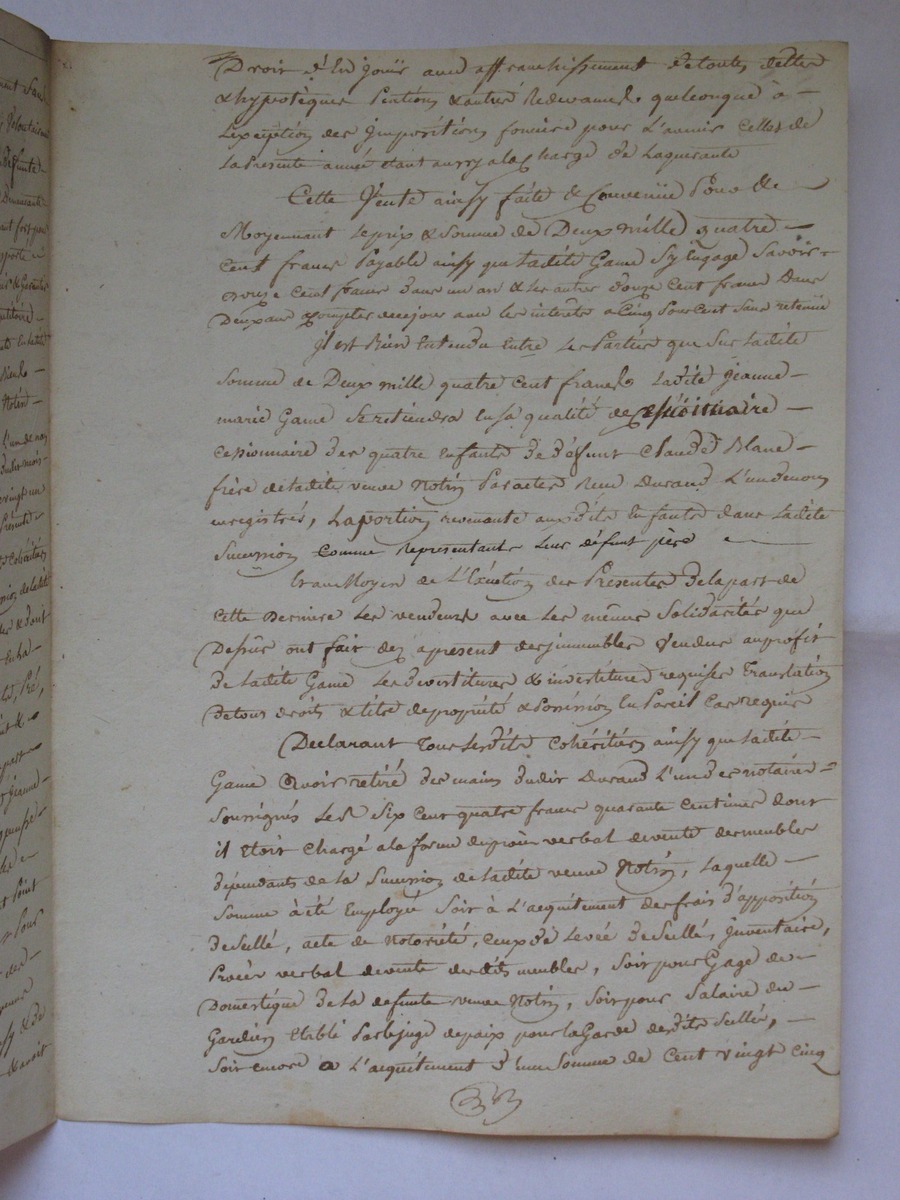 Droit d'En jouir avec affranchissement de toutes dettes
& hypotèques Pentions & autres Redevances quelconque à
L'exception des jmpositions foncière pour L'avenir celles de
La Presente année étant aussy a la charge de Laquerante
Cette Vente ainsy faite & Convenüe Pour &
Moyennant Le prix & Somme de Deux mille quatre
Cent francs Payable ainsy que Ladite Game S'y Engage Savoir
Douze Cent francs dans un an & Les autres Douze Cent francs Dans
Deux ans a compter de ce jour avec Les interêts a Cinq Pour Cent Sans retenüe
jl est Bien Entendu Entre Les Parties que Sur Ladite
Somme de Deux mille quatre Cent francs Ladite jeanne
marie Game Se retiendra En Sa qualité de
Cessionnaire des quatre Enfants de Défunt Claude Blanc
frère de Ladite veuve Notin Par actes Reçu Durand L'un de nous
enregistrés, La portion revenante aux dits Enfants dans Ladite
Sucession Comme Representants Leur défunt père
Et au Moyen de L'Exécution des Présentes De la part de
Cette Dernière Les vendeurs avec Les mêmes Solidarités que
Dessûs ont fait dez apresent des jmmeubles Vendus au profit
De Ladite Game Les devestitures & investitures requises Translation
De tous droits & titre de proprieté & Possession En Pareil Cas requis
Declarant Tous Lesdits Cohéritiers ainsy que Ladite
Game Avoir retiré des mains dudit Durand L'un des notaires
Soussignés Les Six Cent quatre francs quarante Centimes dont
il Etoit Chargé a la forme du procès verbal de vente des meubles
Dépendants de La Sucession de Ladite veuve Notin, Laquelle
Somme à été Employée Soit à L'acquitement des frais D'apposition
De Sellé, acte de Notorieté, Ceux de Levée De Sellés, jnventaire,
Procès verbal de vente desdits meubles, Soit pour Gage de
Domestique De La defunte veuve Notin, Soit pour Salaire du
Gardien Etabli Par Le juge de paix pour La Garde desdits Sellés,
Soit encore a L'acquitement d'une Somme de Cent vingt Cinq